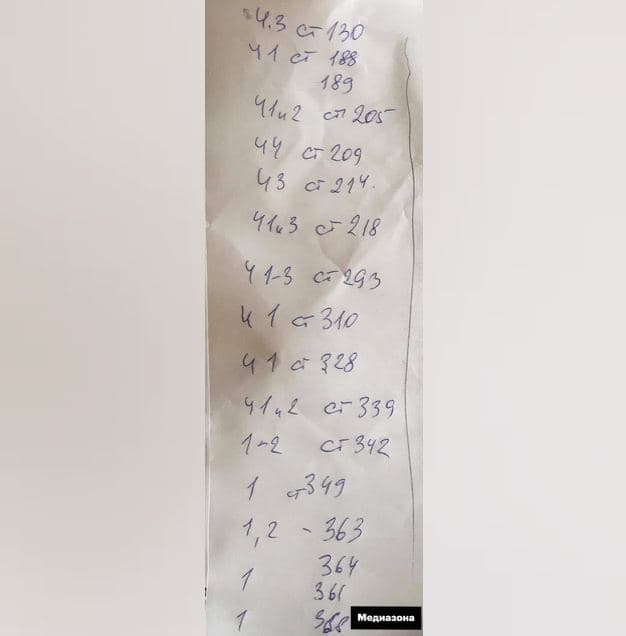 ч.3 ст 130
ч1 ст 188
189
ч1и2 ст 205
ч4 ст 209
ч3 ст 214.
ч1и3 ст 218
ч 1-3 ст 293
ч 1 ст 310
ч 1 ст 328
ч1и2 ст 339
1-2 ст 342
1 ст 349
1,2 - 363
364
1
361
1 368
Медиазона